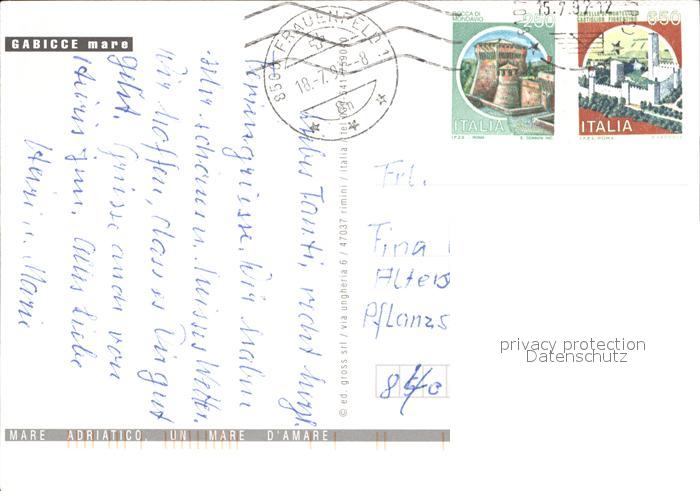 GABICCE mare
Liebes Tanti, recht herzl.
Feriengrüsse. Wir haben
sehr schönes u. heisses Wetter.
Wir hoffen, dass es Dir gut
geht. Grüsse auch von
Alles Liebe
Heiri u. Marie
MARE ADRIATICO, UN MARE D'AMARE
© ed. gross srl / via ungheria 6 / 47037 rimini / italia / tel
8500 FRAUENFELD 1
18.7.9 -8
15.7.92.12
ROCCA DI MONDAVIO
250
ITALIA
I.P.Z.S. ROMA
CASTIGLION FIORENTINO
850
ITALIA
I.P.Z.S. ROMA
Frl.
Fina
Alters
Pflanzs
privacy protection
Datenschutz